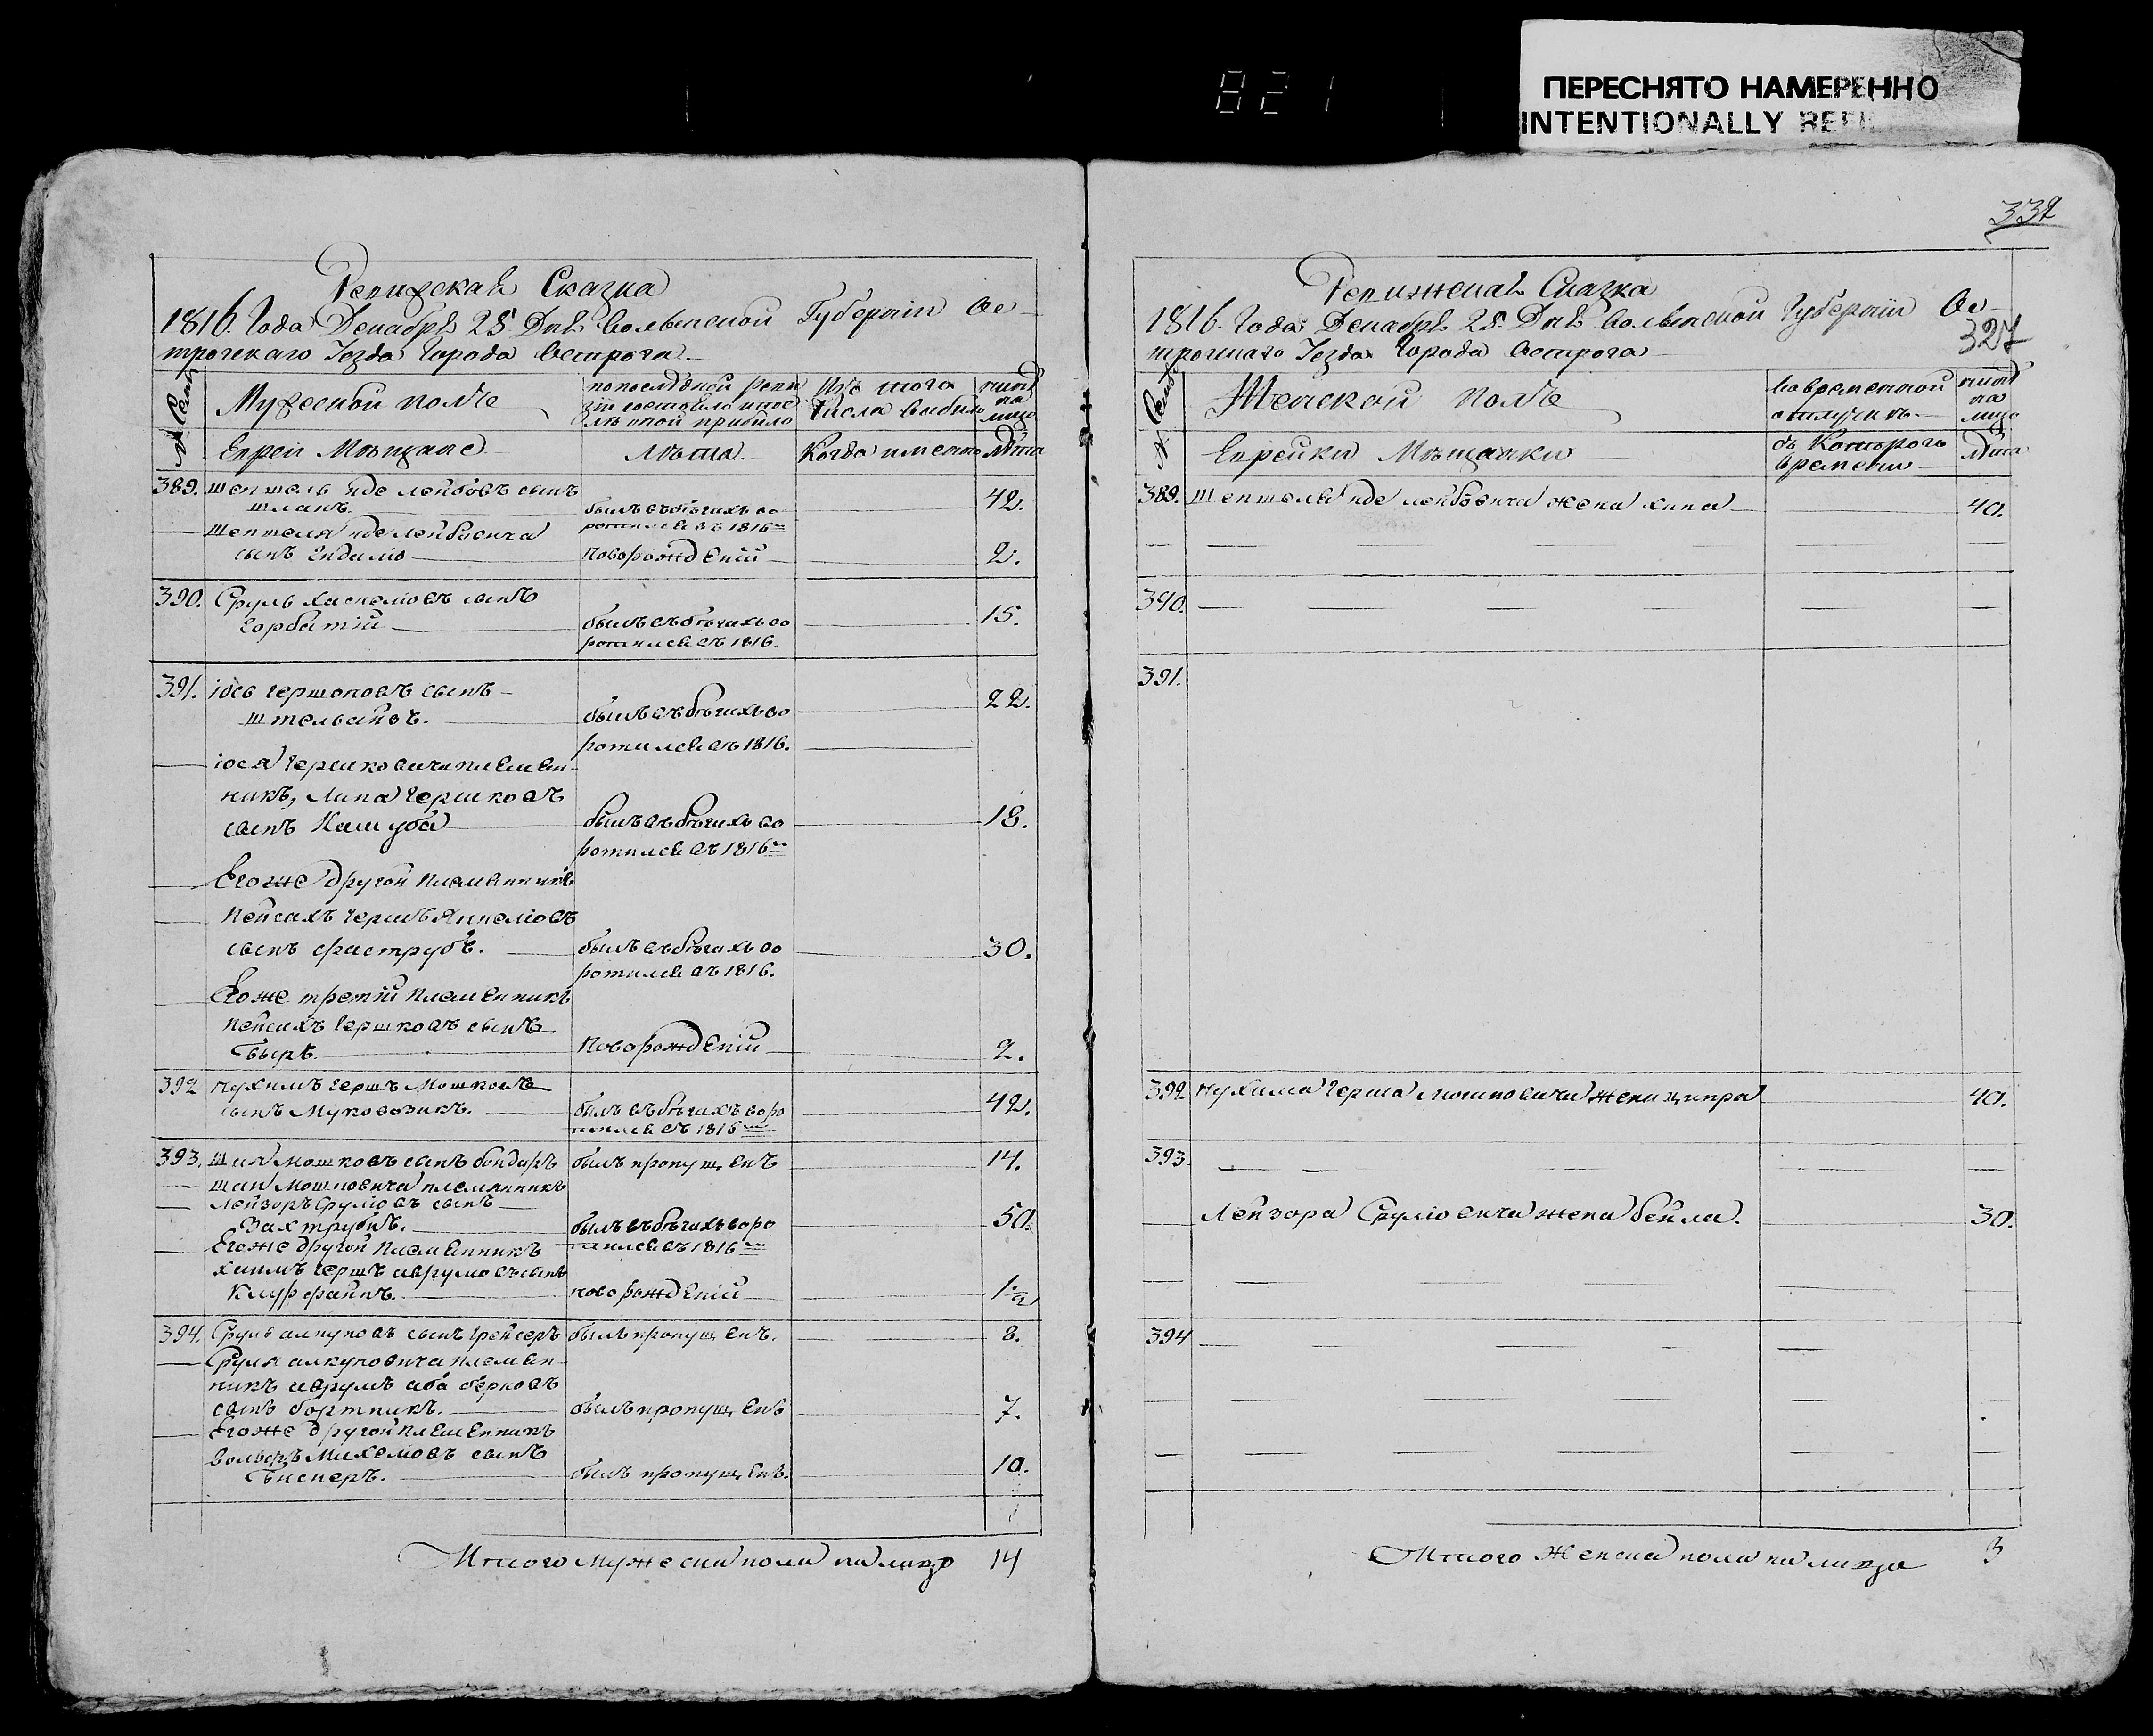 821
ПЕРЕСНЯТО НАМЕРЕННО
INTENTIONALLY REFIL
Ревижская Сказка
1816. Года Декабря 25. Дня Волынской Губернiи Ос-
трогскаго Уезда Города Острога
№ Семей
Мужеской полъ
по последней реви
зiи состояло и пос
ле оной прибыло
Изъ того
числа выбыло
ныне
на
лицо
Евреи Мещане
Лета.
Когда именно
Лета
389. Шепшель иде лейбовъ сынъ
шланъ.
былъ въ бегахъ во
ротился въ 1816
42.
Шепшеля иде лейбовича
сынъ Юдилю
новорожденiй
2.
390. Сруль хаскелiовъ сынъ
горбатiй
былъ въ бегахъ во
ротился въ 1816.
15.
391. iось гершоновъ сынъ
штельвахъ.
былъ въ бегахъ во
ротился въ 1816.
22.
iося гершковича племен-
никъ, липа гершковъ
сынъ Кашуба
былъ въ бегахъ во
ротился въ 1816
18.
Егоже другой племенникъ
пейсахъ гершъ Янкелiовъ
сынъ фаструбъ.
былъ въ бегахъ во
ротился въ 1816.
30.
Егоже третiй племенникъ
пейсахъ гершковъ сынъ
быръ.
новорожденiй
2.
392 нухимъ гершъ Мошковъ
сынъ Муковозикъ.
былъ въ бегахъ воро
тился въ 1816
42.
393. Шия Мошковъ сынъ бондаръ
былъ пропущенъ
14.
шаи Мошковича племянникъ
Лейзоръ Срулiовъ сынъ
Вахтрубъ.
былъ въ бегахъ воро
тился въ 1816
50.
Егоже другой племенникъ
хаимъ гершъ аврумовъ сынъ
Клурфайнъ.
новорожденiй
1/2
394. Сруль алкуновъ сынъ грейсеръ
былъ пропущенъ.
8.
Сруля алкуновича племен-
никъ аврумъ аба берковъ
сынъ бортникъ.
былъ пропущенъ
7.
Егоже другой племенникъ
Вольфъ Михелiовъ сынъ
Гнсперъ.
былъ пропущенъ.
10.
Итого мужеска пола на лицо 14
332
Ревижская Сказка
1816. Года Декабря 25. Дня Волынской Губернiи Ос-
трогскаго Уезда Города Острога
327
№ Семей
Женской полъ
во временной
отлучкъ
ныне
на
лицо
Еврейки Мещанки
съ Котораго
времени
Лета
389. Шепшеля иде лейбовича жена хана
40.
390.
391.
392 нухима герша мошковича жена ципра
40.
393.
Лейзора Срулiовича жена бейла.
30.
394
Итого Женска пола на лицо 3